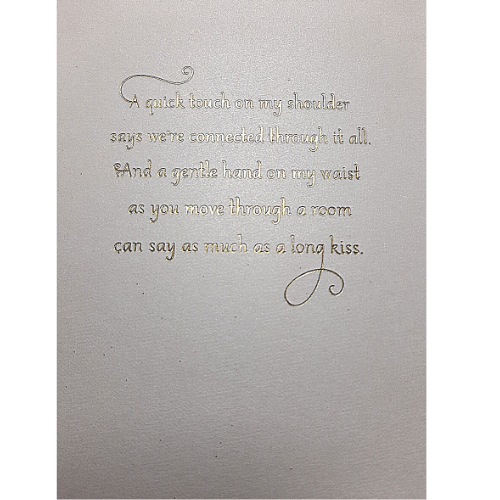 A quick touch on my shoulder
says we're connected through it all.
And a gentle hand on my waist
as you move through a room
can say as much as a long kiss.